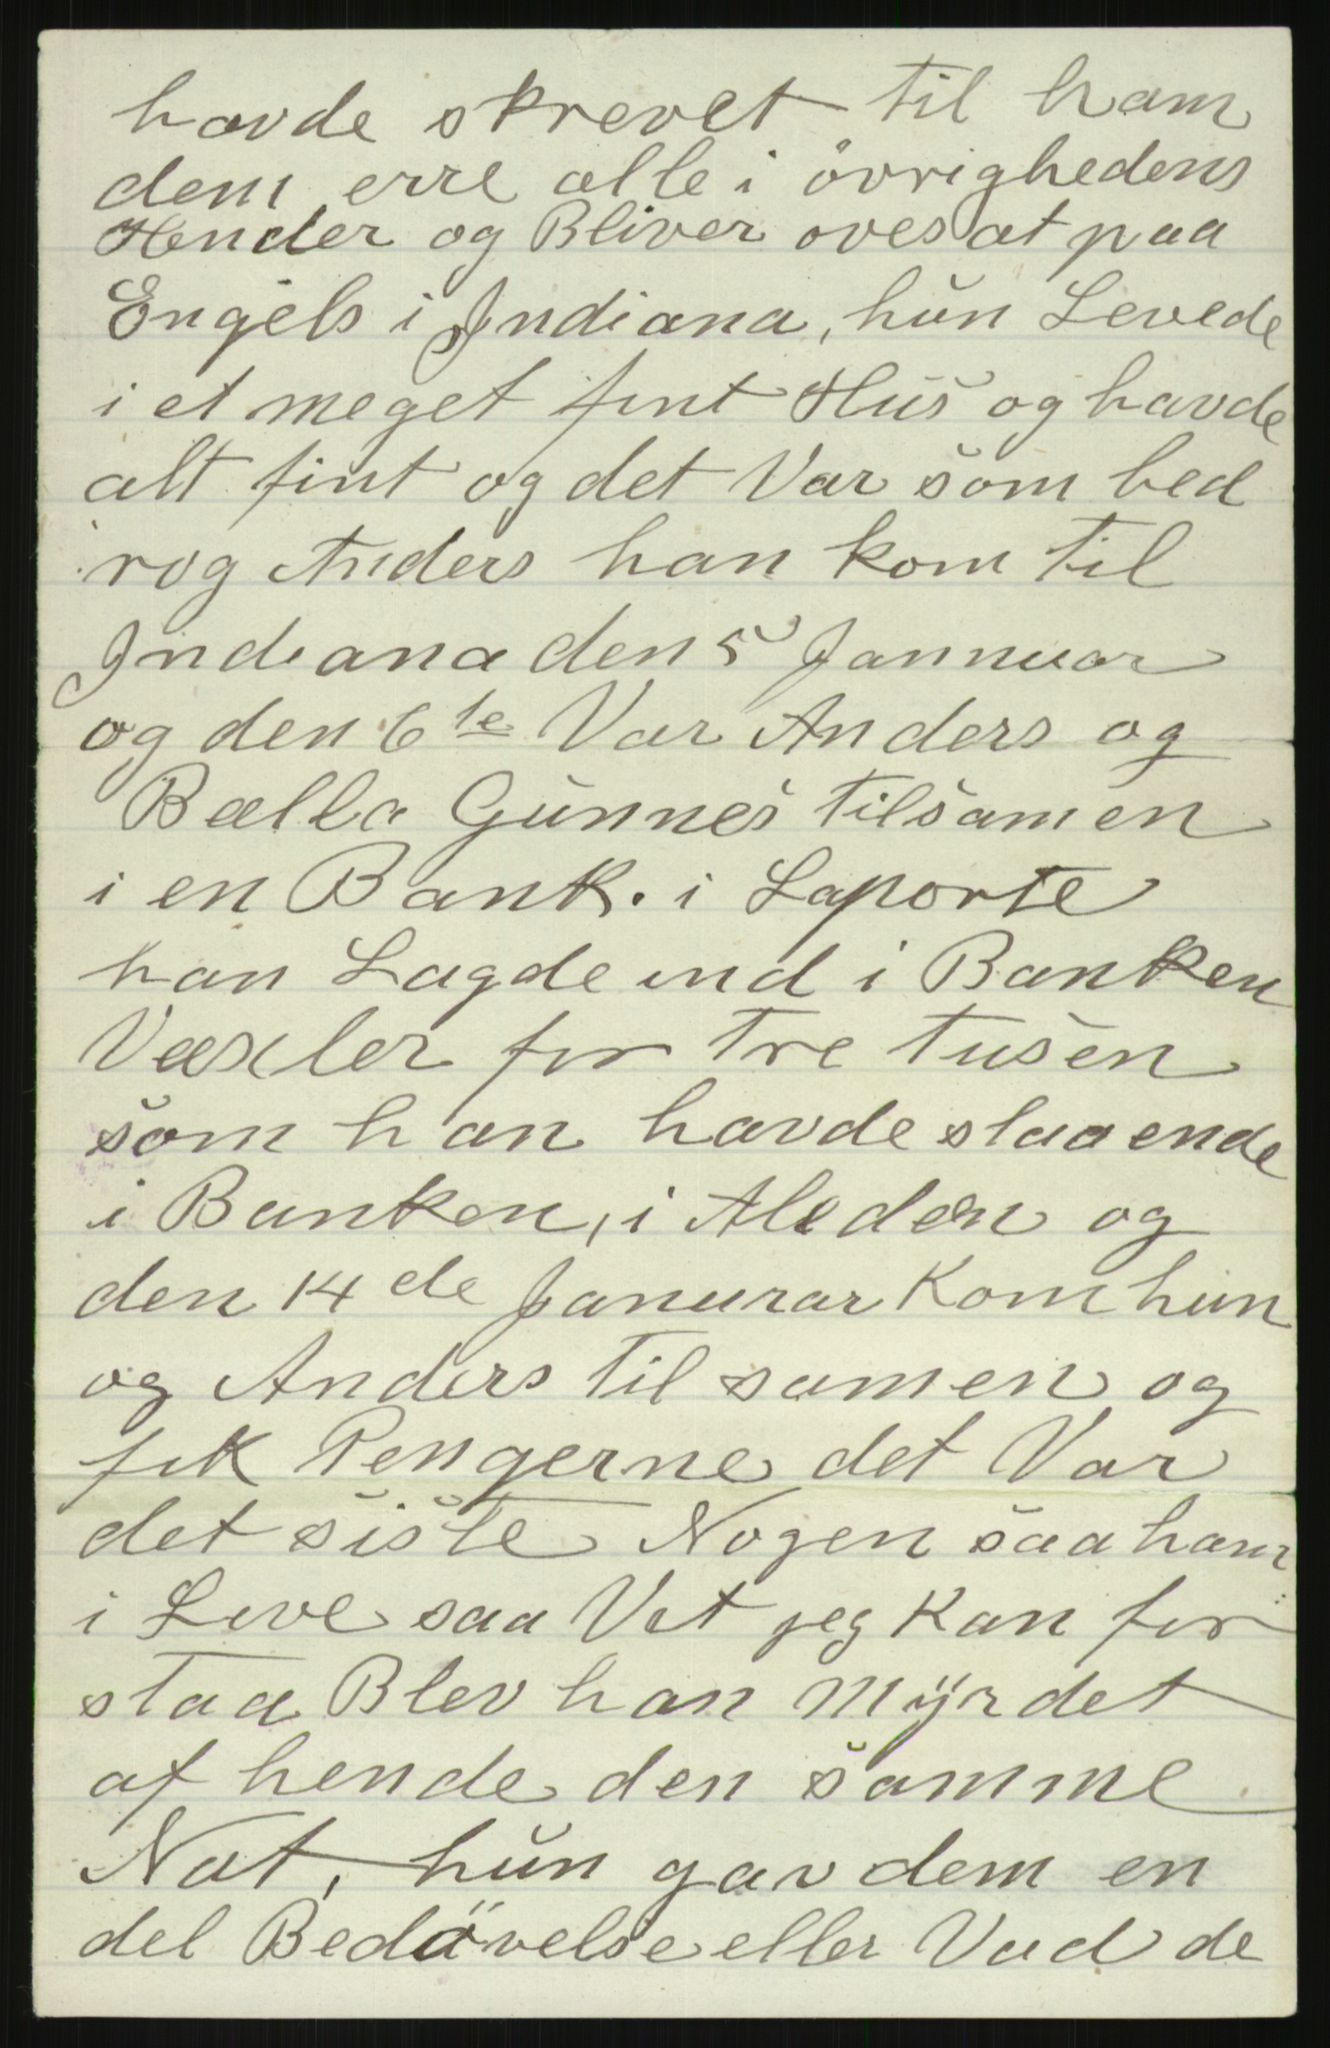 havde skrevet til ham
dem erre alle i övrighedens
Hender og Bliver ovesat paa
Engels i Indiana, hŭn Levede
i et meget fint Hŭs og havde
alt fint og det Var som bed
rog Anders han kom til
Indiana den 5 Jannuar
og den 6te Var Anders og
Bælla Gŭnnes tilsamen
i en Bank. i Laporte
han Lagde ind i Banken
Væxler for tre tusen
som han havde staaende
i Banken, i Aleden og
den 14 de Janurar Kom hun
og Anders til samen og
fik Pengerne det Var
det siste Nogen saa ham
i Live saa Vet jeg Kan for
staa Blev han Myrdet
af hende den samme
Nat, hŭn gav dem en
del Bedövelse eller Vad de